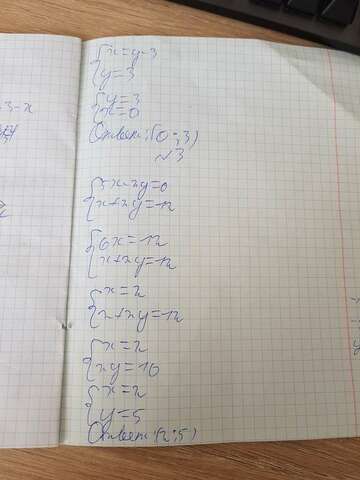 3-x
{x=y-3
{y=3
{y=3
{x=0
Ответ: (0;3)
№3
{5x-2y=0
{x+2y=12
{6x=12
{x+2y=12
{x=2
{2+2y=12
{x=2
{2y=10
{x=2
{y=5
Ответ: (2;5)